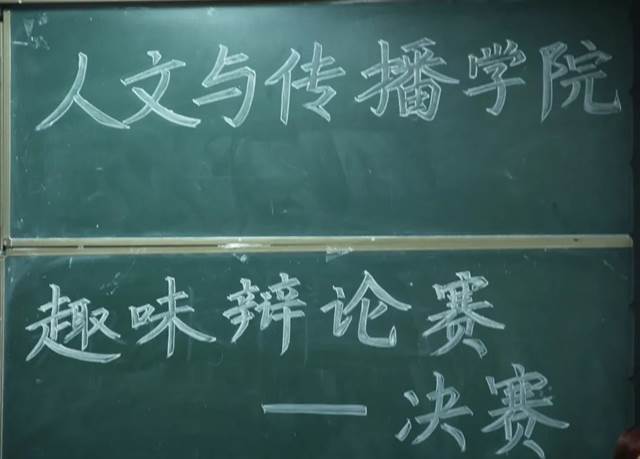 人文与传播学院
趣味辩论赛
—决赛